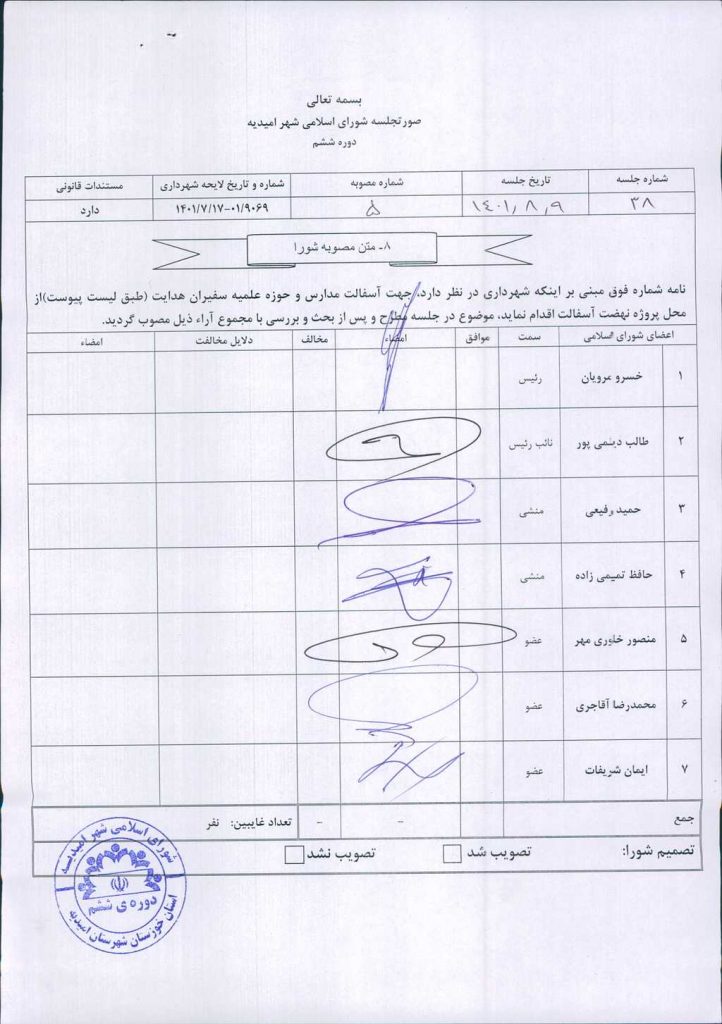 بسمه تعالی
صورتجلسه شورای اسلامی شهر امیدیه
دوره ششم
شماره جلسه
تاریخ جلسه
شماره مصوبه
شماره و تاریخ لایحه شهرداری
مستندات قانونی
۳۸
۱۴۰۱/۸/۹
۵
۱۴۰۱/۷/۱۷-۰۱/۹۰۶۹
دارد
۸- متن مصوبه شورا
نامه شماره فوق مبنی بر اینکه شهرداری در نظر دارد، جهت آسفالت مدارس و حوزه علمیه سفیران هدایت (طبق لیست پیوست)از
محل پروژه نهضت آسفالت اقدام نماید، موضوع در جلسه مطرح و پس از بحث و بررسی با مجموع آراء ذیل مصوب گردید.
اعضای شورای اسلامی
سمت
موافق
امضاء
مخالف
دلایل مخالفت
امضاء
۱ خسرو مرویان رئیس
۲ طالب دیلمی پور نائب رئیس
۳ حمید رفیعی منشی
۴ حافظ تمیمی زاده منشی
۵ منصور خاوری مهر عضو
۶ محمدرضا آقاجری عضو
۷ ایمان شریفات عضو
جمع - - تعداد غایبین: نفر
تصمیم شورا: تصویب شد تصویب نشد
شورای اسلامی شهر امیدیه
دوره ی ششم
استان خوزستان شهرستان امیدیه